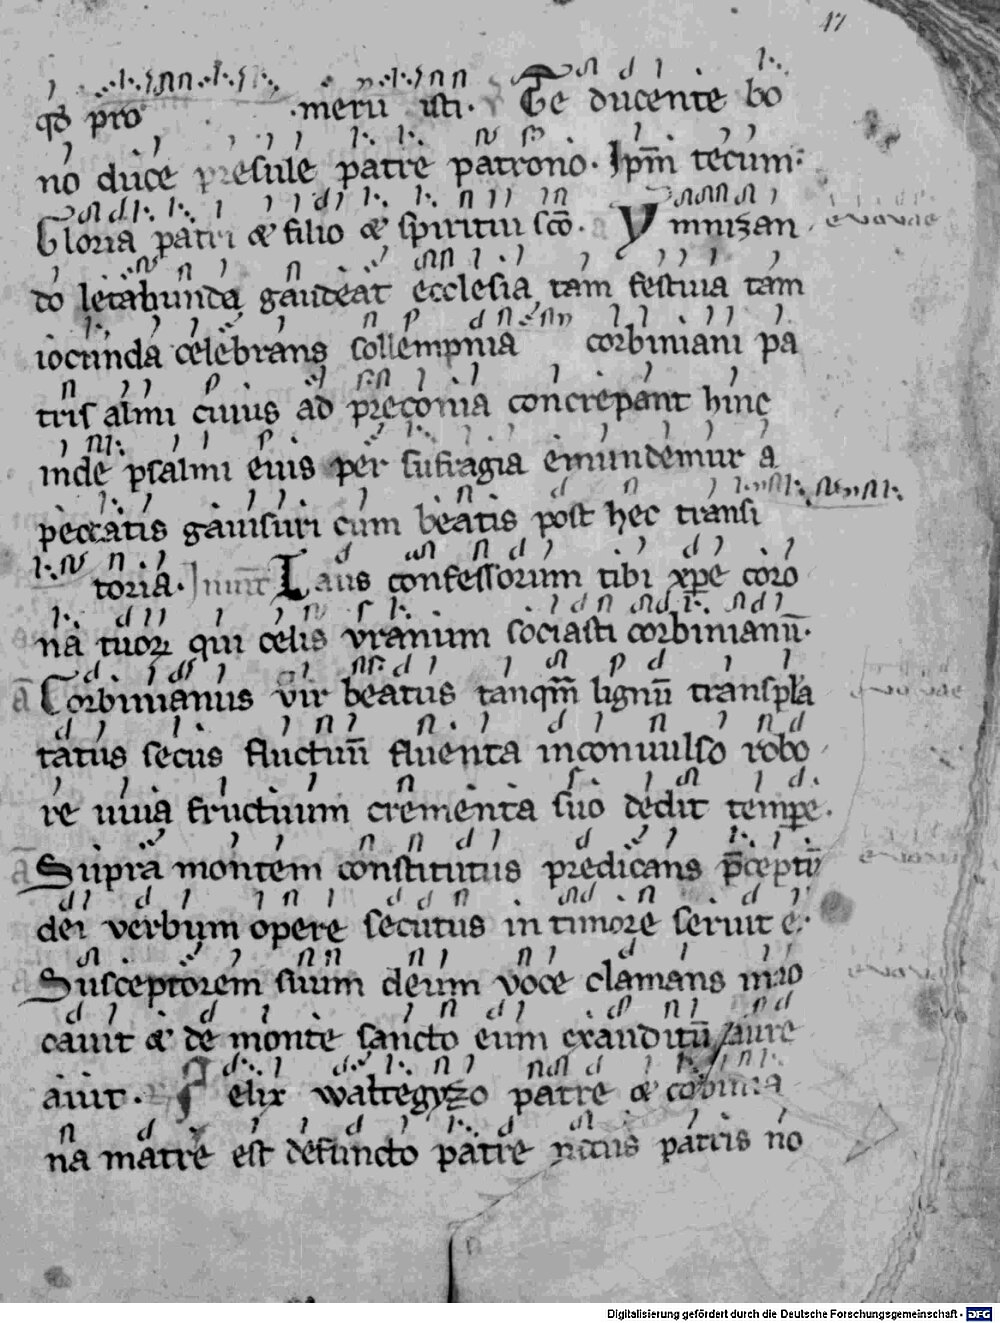 17
qd pro meru isti. Te ducente bo
no duce presule patre patrono. Ipm̄ tecum:
Gloria patri & filio & spiritui scō. Ymnizan euouae
do letabunda gaudeat ecclesia tam festiua tam
iocunda celebrans sollempnia corbiniani pa
tris almi cuius ad preconia concrepant hinc
inde psalmi eius per sufragia emundemur a
peccatis gauisuri cum beatis post hec transi
toria. Inuit Laus confessorum tibi xp̄e coro
na tuoꝝ qui celis vranum sociasti corbinianū.
ā Corbinianus vir beatus tanqm̄ lignū transpla euouae
tatus secus fluctuū fluenta inconuulso robo
re uiua fructuum crementa suo dedit tempe.
ā Supra montem constitutus predicans p̄ceptū
dei verbum opere secutus in timore seruit e.
Susceptorem suum deum voce clamans inuo
cauit & de monte sancto eum exauditū aure
auit. Felix waltegyso patre & cobinia
na matre est defuncto patre natus patris no
Digitalisierung gefördert durch die Deutsche Forschungsgemeinschaft - DFG